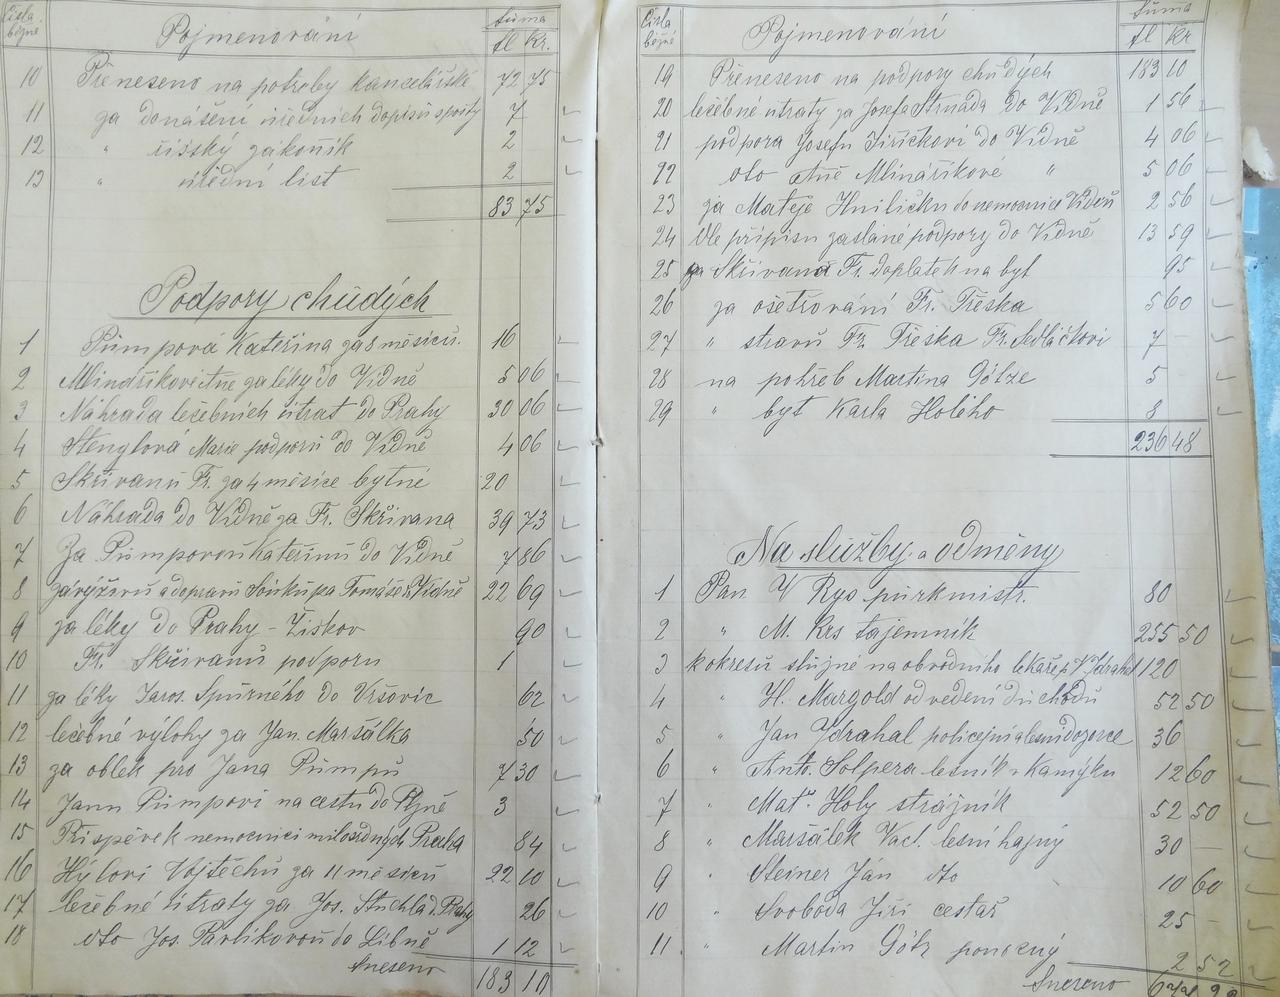 Čísla běžné Pojmenování Suma
fl Kr.
10 Přeneseno na potřeby kancelářské 72 75
11 za donášení úředních dopisů spořity 7
12 " říšský zákoník 2
13 " úřední list 2
83 75
Podpory chudých
1 Pumpová Kateřina za 8 měsíců. 16
2 Mlinaříkové Aně za léky do Vídně 5 06
3 Náhrada lečebních útrat do Prahy 30 06
4 Stenglová Marie podporu do Vídně 4 06
5 Skřivanu Fr. za 4 měsíce bytné 20
6 Náhrada do Vídně za Fr. Skřivana 39 73
7 Za Pumpovou Kateřinu do Vídně 7 86
8 a dopravu Soukupa Tomáše Vídně 22 69
9 za léky do Prahy - Žižkov 90
10 Fr. Skřivanu podporu 1
11 za léky Jaros. Spurného do Vršovic 62
12 lečebné výlohy za Jan. Maršálka 50
13 za oblek pro Jana Pumpu 7 30
14 Janu Pumpovi na cestu do 3
15 Příspěvek nemocnici milosrdných Praha 84
16 Hýlovi Vojtěchu za 11 měsíců 22 10
17 lečebné útraty za Jos. Stuchla d. Prahy 26
18 dto Jos. Pavlíkovou do Libně 1 12
Sneseno 183 10
Čísla běžné Pojmenování Suma
fl Kr
19 Přeneseno na podpory chudých 183 10
20 lečebné útraty za Josefa Strnada do Vídně 1 56
21 podpora Josefu Jiříčkovi do Vídně 4 06
22 dto Aně Mlinaříkové " 5 06
23 za Matěje Hniličku do nemocnice Vídeň 2 56
24 Dle přípisu zaslané podpory do Vídně 13 59
25 za Skřivana Fr. doplatek na byt 95
26 za ošetřování Fr. Třeska 5 60
27 " stravu Fr. Třeska Fr. Sedláčkovi 7 -
28 na pohřeb Martina Götze 5
29 " byt Karla Holého 8
236 48
Na služby a odměny
1 Pan. V Rys purkmistr. 80
2 " M. Krs tajemník 255 50
3 k okresu služné na obvodního lékaře p. V. Zdrahal 120
4 " H. Margold od vedení důchodu 52 50
5 " Jan Zdrahal policejní a lesní dozorce 36
6 " Anto. Solpera lesník v Kamýku 12 60
7 " Mat. Holy strážník 52 50
8 " Maršálek Vacl. lesní hajný 30 -
9 " Steiner Ján dto 10 60
10 " Svoboda Jiří cestař 25 -
11. " Martin Götz ponocný 2 52
Sneseno